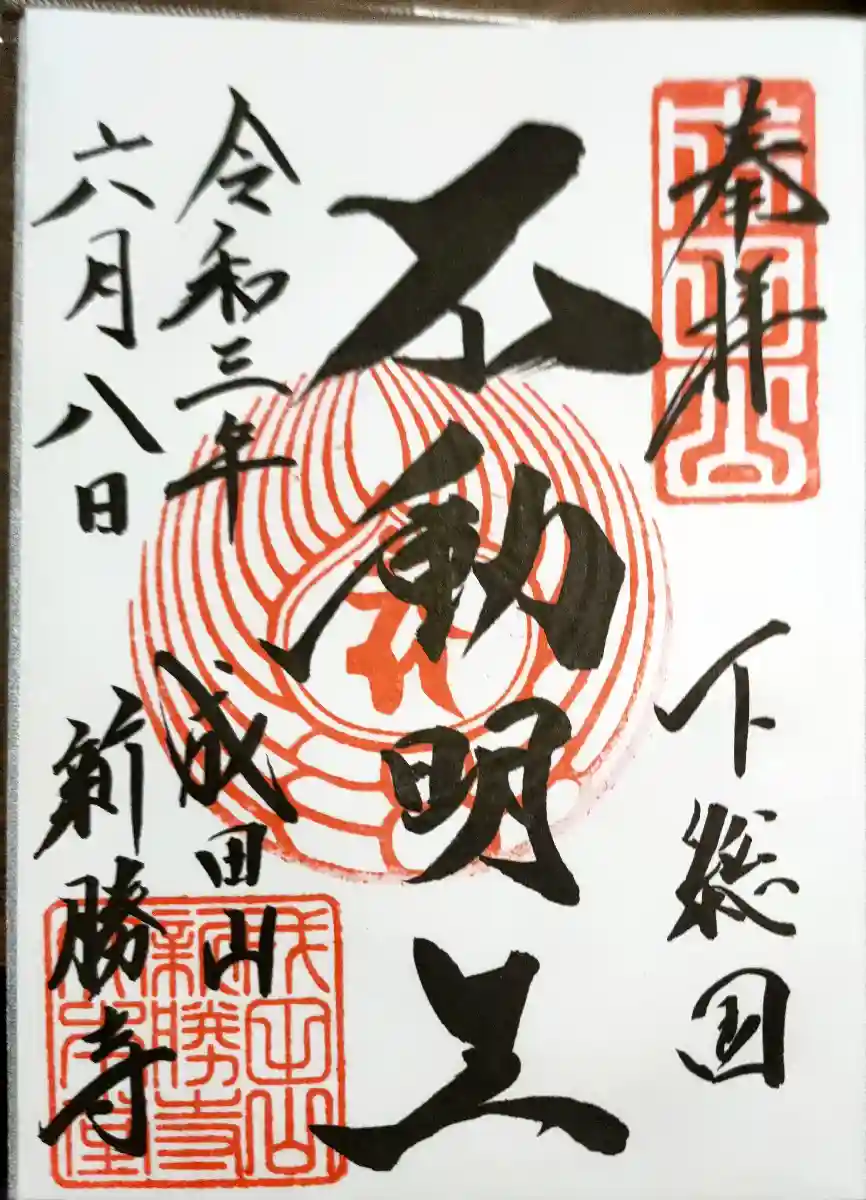 奉拝
下総国
不動明王
令和三年
六月八日
成田山
新勝寺
成田山
成田山
新勝寺